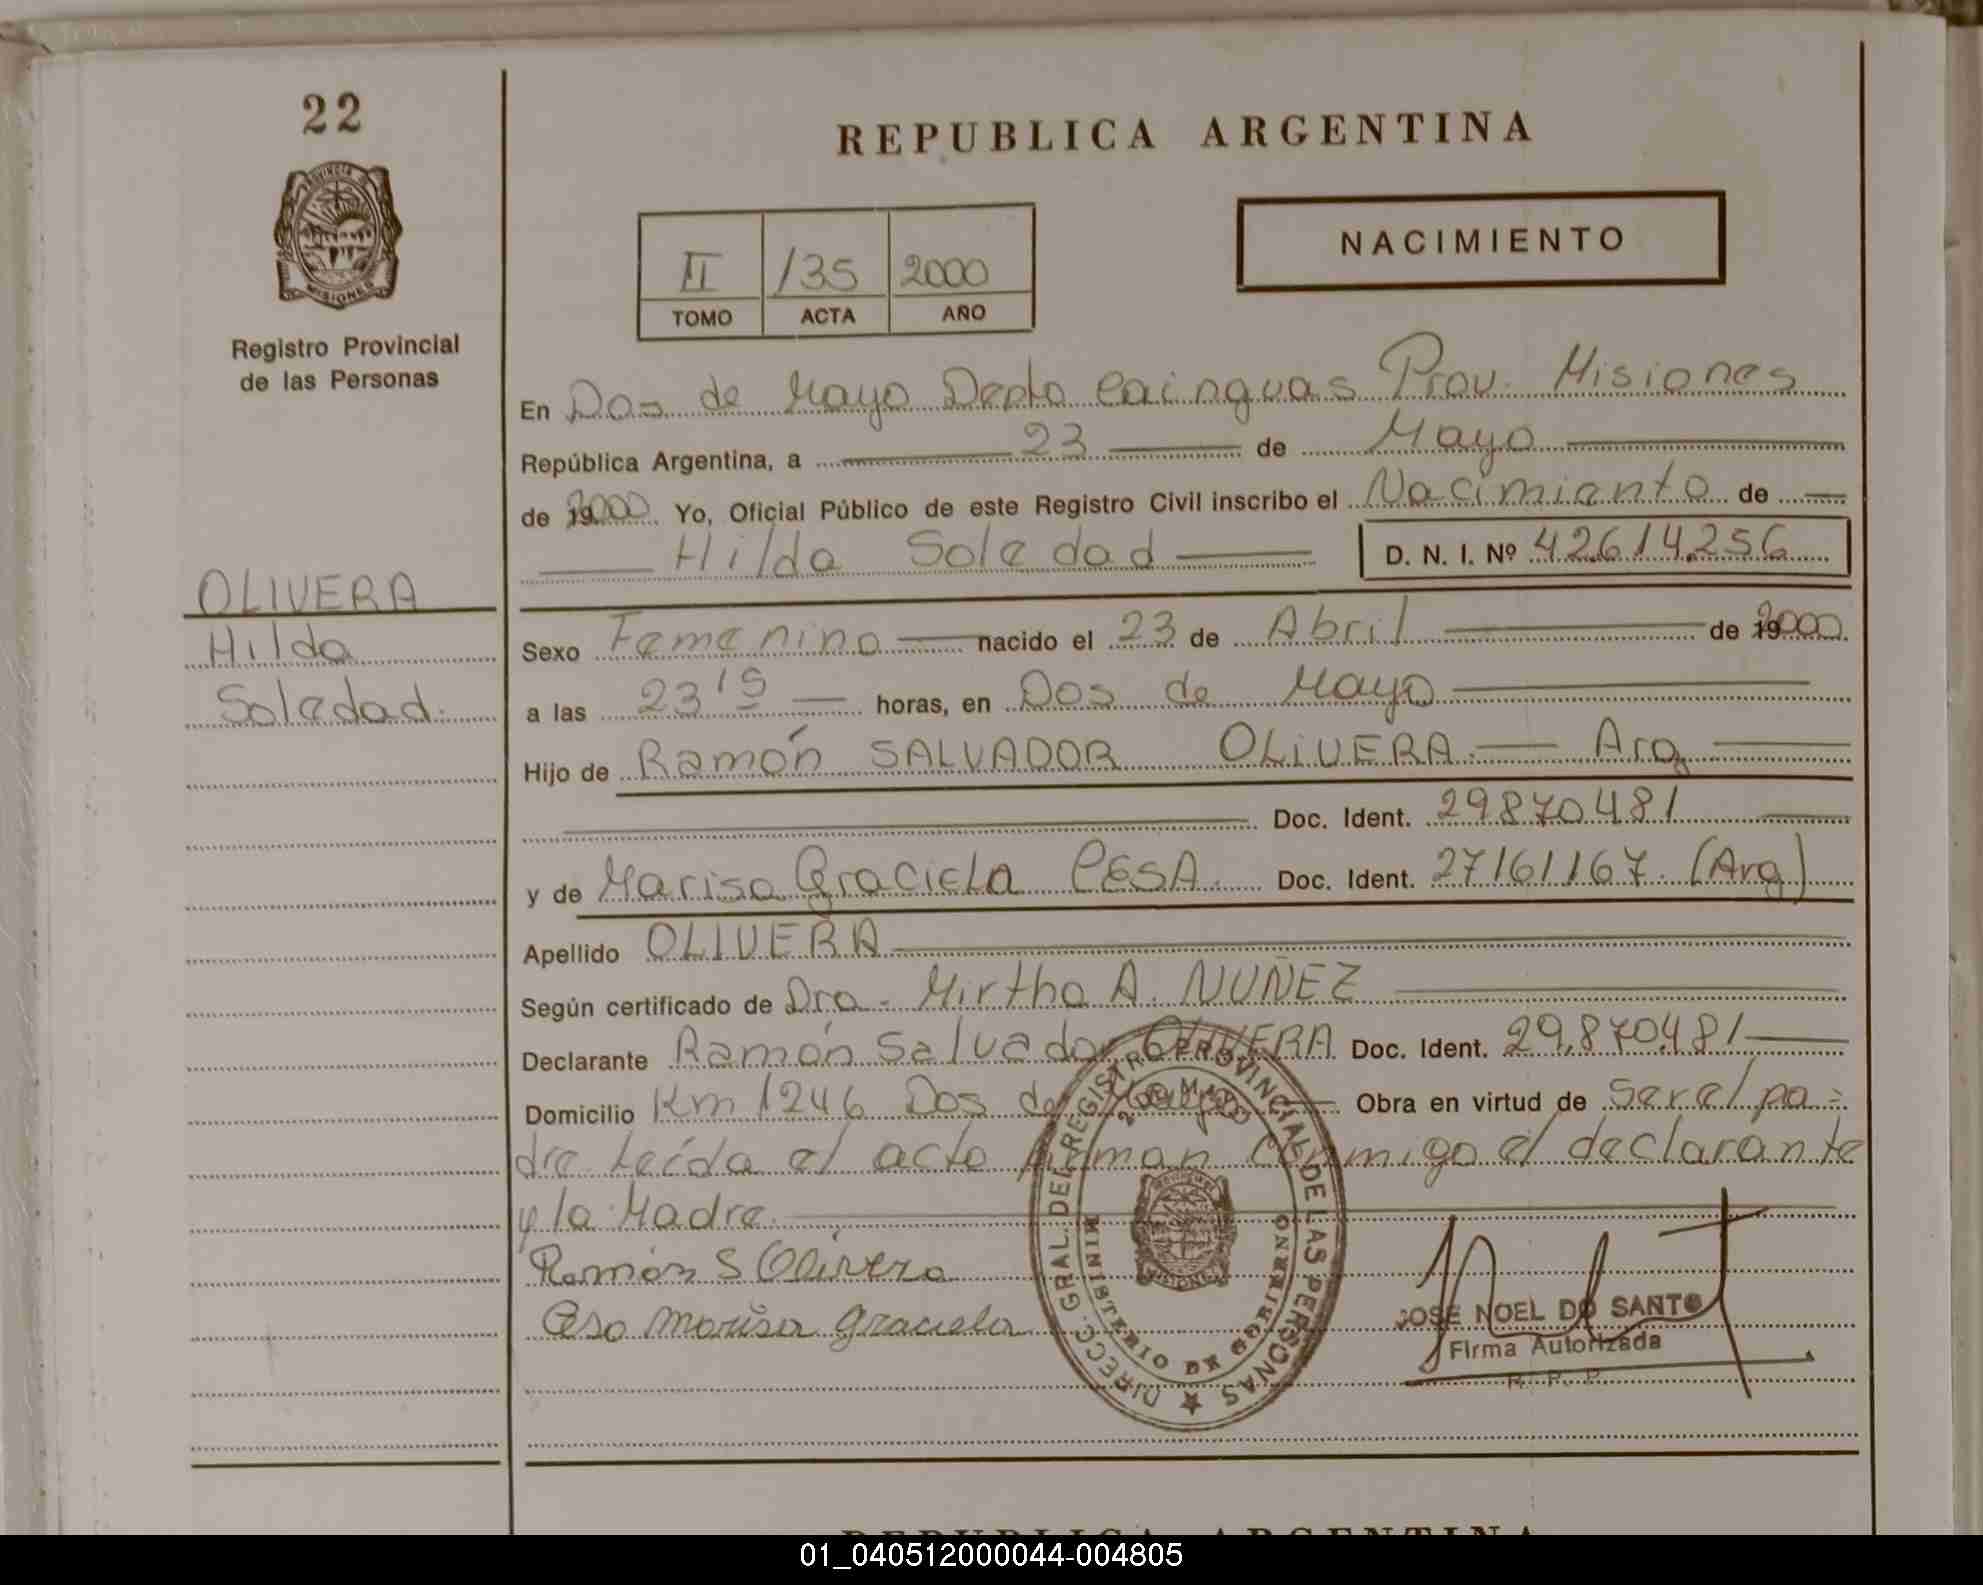 22
REPUBLICA ARGENTINA
PROVINCIA DE
MISIONES
Registro Provincial
de las Personas
NACIMIENTO
II 135 2000
TOMO ACTA AÑO
En Dos de Mayo Depto Cainguas Prov. Misiones
República Argentina, a 23 de Mayo
de 2000 Yo, Oficial Público de este Registro Civil inscribo el Nacimiento de
Hilda Soledad D. N. I. Nº 42.614.256
OLIVERA
Hilda
Soledad.
Sexo Femenino nacido el 23 de Abril de 2000
a las 23 15 horas, en Dos de Mayo
Hijo de Ramón SALVADOR OLIVERA. Arg
Doc. Ident. 29870481
y de Marisa Graciela CESA. Doc. Ident. 27161167. (Arg)
Apellido OLIVERA
Según certificado de Dra. Mirtha A. NUÑEZ
Declarante Ramón Salvador OLIVERA Doc. Ident. 29.870.481
Domicilio Km 1246 Dos de Mayo Obra en virtud de ser el pa=
dre Leída el acta firman conmigo el declarante
y la Madre.
Ramón S Olivera
Ceso Marisa Graciela
DIRECC. GRAL. DEL REGISTRO PROVINCIAL DE LAS PERSONAS
2 DE MAYO
MINISTERIO DE GOBIERNO
JOSE NOEL DO SANTO
Firma Autorizada
R. P. P.
REPUBLICA ARGENTINA
01_040512000044-004805